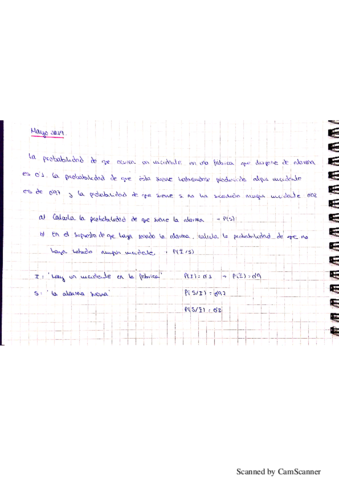 Mayo 2019.
La probabilidad de que ocurra un accidente en una fábrica que dispone de alarma
es 0'1. La probabilidad de que ésta suene habiéndose producido algún accidente
es de 0'97 y la probabilidad de que suene si no ha sucedido ningún incidente
a) Calcula la probabilidad de que suene la alarma → P(S)
En el supuesto de que haya sonado la alarma, calcula la probabilidad de que no
haya habido ningún incidente. → P(Ī/S)
I: "hay un accidente en la fábrica" P(I) = 0'1 → P(Ī) = 0'9
S: "la alarma suena" P(S/I) = 0'97
P(S/Ī) =
Scanned by CamScanner